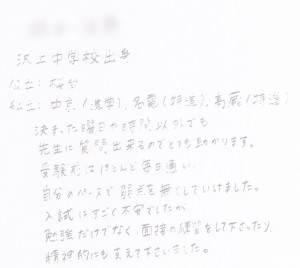 沢上中学校出身
公立: 桜台
私立: 中京(進学), 名電(特進), 高蔵(特進)
決まった曜日や時間以外でも
先生に質問出来るのでとても助かります。
受験前はほとんど毎日通い
自分のペースで弱点を無くしていけました。
入試はすごく不安でしたが
勉強だけでなく、面接の練習をして下さったり
精神的にも支えて下さいました。